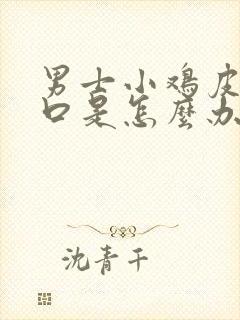 男士小鸡皮
口是怎麼办
沈青千